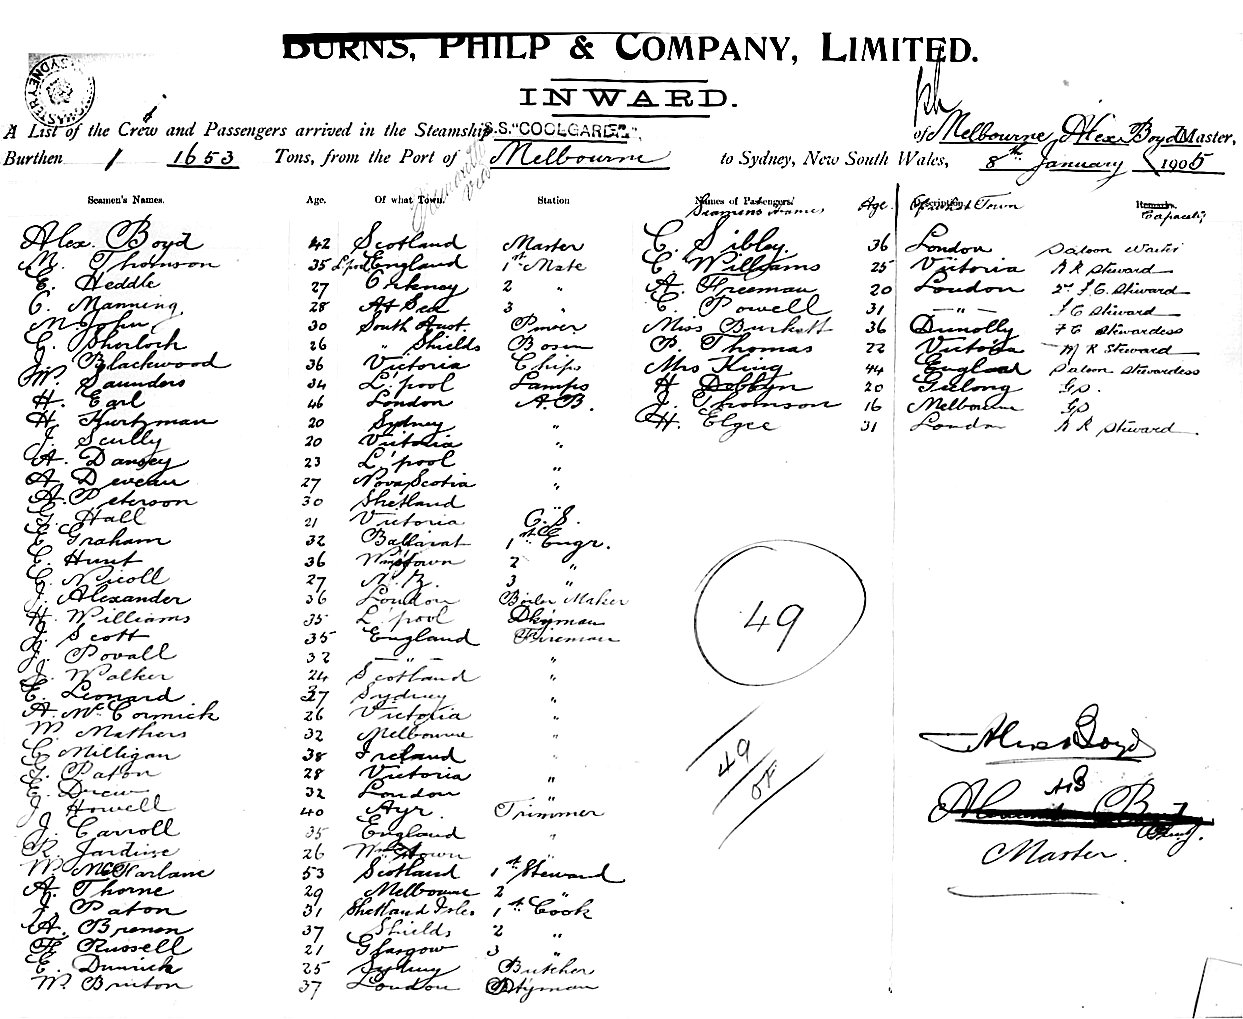 BURNS, PHILP & COMPANY, LIMITED.
INWARD.
A List of the Crew and Passengers arrived in the Steamship S.S. "COOLGARDIE", of Melbourne, Alex Boyd Master,
Burthen 1653 Tons, from the Port of Melbourne to Sydney, New South Wales, 8th January 1905
Seamen's Names. Age. Of what Town. Station
Alex. Boyd 42 Scotland Master
M. Thomson 35 L'pool England 1st Mate
E. Heddle 27 Orkney 2 "
C. Manning 28 At Sea 3 "
M. John 30 South Aust.
C. Sherlock 26 " Shields Bosun
J. Blackwood 36 Victoria Chips
W. Saunders 34 L'pool Lamps
H. Earl 46 London A.B.
H. Kurtzman 20 Sydney "
J. Scully 20 Victoria "
A. Dansey 23 L'pool "
A. Deveau 27 Nova Scotia "
A. Peterson 30 Shetland "
G. Hall 21 Victoria O.S.
E. Graham 32 Ballarat 1st Engr.
C. Hunt 36 Wmstown 2 "
C. Nicoll 27 N.Z. 3 "
J. Alexander 36 London Boiler Maker
H. Williams 35 L'pool Dkyman
J. Scott 35 England Fireman
J. Povall 32 — " — "
J. Walker 24 Scotland "
E. Leonard 37 Sydney "
A. McCormick 26 Victoria "
W. Mathers 32 Melbourne "
C. Milligan 38 Ireland "
G. Paton 28 Victoria "
E. Drew 32 London "
J. Howell 40 Ayr. Trimmer
J. Carroll 35 England "
R. Jardine 26 Wmstown "
W. McFarlane 53 Scotland 1st Steward
A. Thorne 29 Melbourne 2 "
J. Paton 31 Shetland Isles 1st Cook
A. Brenon 37 Shields 2 "
F. Russell 21 Glasgow 3 "
E. Dunrick 25 Sydney Butcher
W. Brinton 37 London Ptyman
Names of Passengers. Age. Description. Remarks.
Seamens Names Town Capacity
C. Sibley 36 London Saloon Waiter
C. Williams 25 Victoria R R Steward
A. Freeman 20 London 2nd S. C. Steward
E. Powell 31 — " — F C Steward
Miss Burkett 36 Dunolly F C Stewardess
B. Thomas 22 Victoria M R Steward
Mrs King 44 England Saloon Stewardess
H. Dobbyn 20 Geelong G.P.
J. Thomson 16 Melbourne G.P.
H. Elgee 31 London R R Steward.
49
49
Alex Boyd
AB
Master.